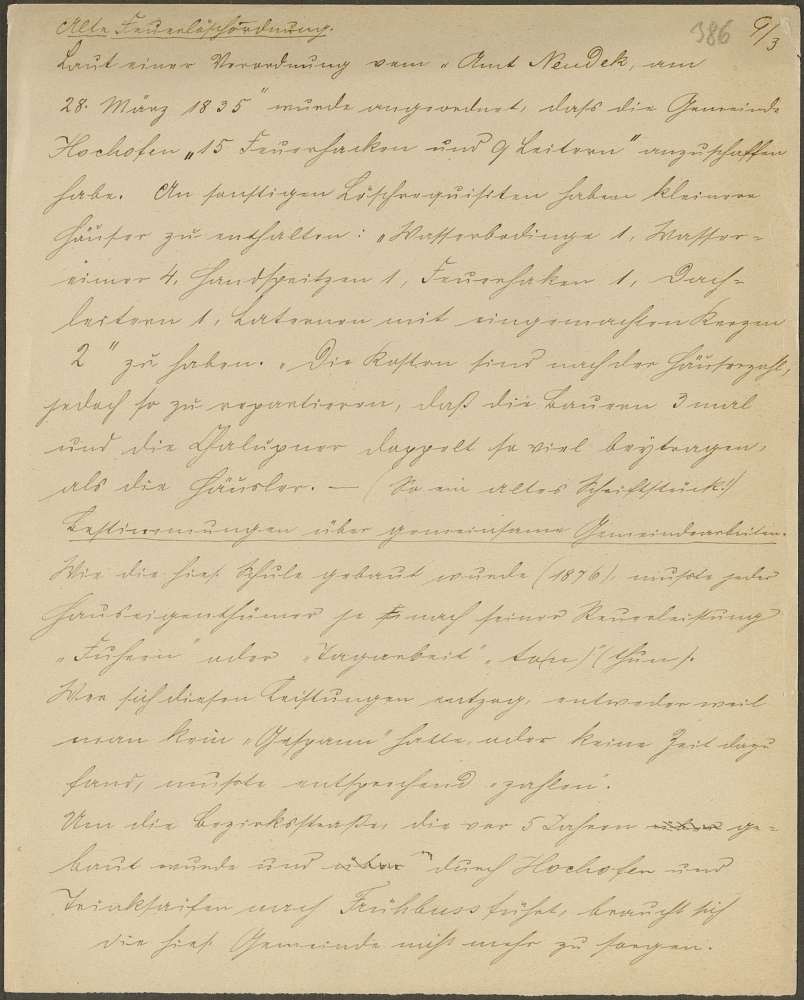 Alte Feuerlöschordnung. 386 9/3
Laut einer Verordnung vom „Amt Neudek, am
28. März 1835" wurde angeordnet, dass die Gemeinde
Hochofen „15 Feuerhacken und 9 Leitern" anzuschaffen
habe. An sonstigen Löschrequisiten haben kleinere
Häuser zu enthalten: „Wasserbodinge 1, Wasser-
eimer 4, Handspritzen 1, Feuerhaken 1, Dach-
leitern 1, Laternen mit eingemachten Kerzen
2" zu haben. „Die Kosten sind nach der Häuserzahl,
jedoch so zu repartieren, daß die Bauern 3 mal
und die Chalupner doppelt so viel beytragen,
als die Häusler. — (So ein altes Schriftstück!)
Bestimmungen über gemeinsame Gemeindearbeiten.
Wie die hies. Schule gebaut wurde (1876), mußte jeder
Hauseigenthümer je nach seiner Steuerleistung
„Fuhern" oder „Tagarbeit" „to(n)" (thun).
Wer sich diesen Leistungen entzog, entweder weil
man kein „Gespann" hatte, oder keine Zeit dazu
fand, mußte entsprechend „zahlen".
Um die Bezirksstraße, die vor 5 Jahren über ge-
baut wurde und über durch Hochofen und
Trinkseifen nach Frühbuss führt, braucht sich
die hies. Gemeinde nicht mehr zu sorgen.